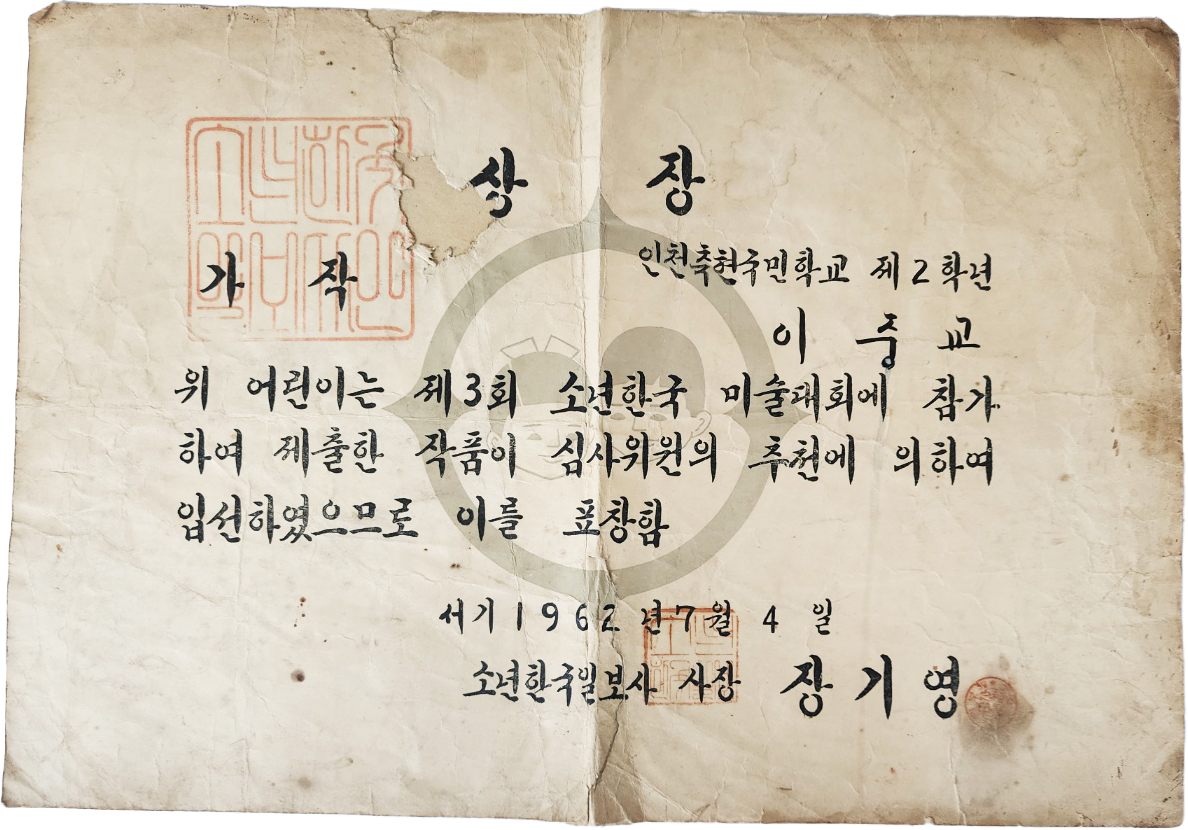 상 장
인천축현국민학교 제2학년
가 작
이 중 교
위 어린이는 제3회 소년한국 미술대회에 참가
하여 제출한 작품이 심사위원의 추천에 의하여
입선하였으므로 이를 표창함
서기 1962년 7월 4일
소년한국일보사 사장 장기영